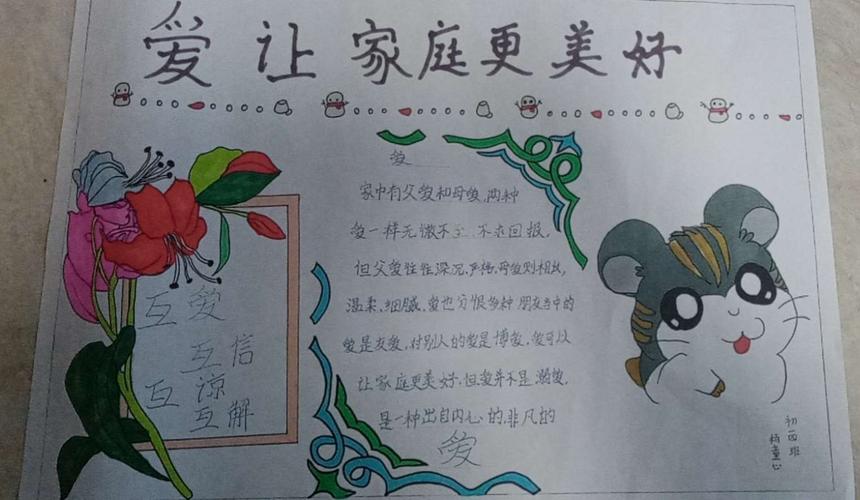 爱让家庭更美好
互爱
互信
互谅
互解
爱
家中有父爱和母爱,两种
爱一样无微不至,不求回报,
但父爱往往深沉,严格,母爱则相出,
温柔,细腻,爱也分很多种,朋友当中的
爱是友爱,对别人的爱是博爱,爱可以
让家庭更美好,但爱并不是溺爱,
是一种出自内心的,非凡的
爱
初四班
杨童心